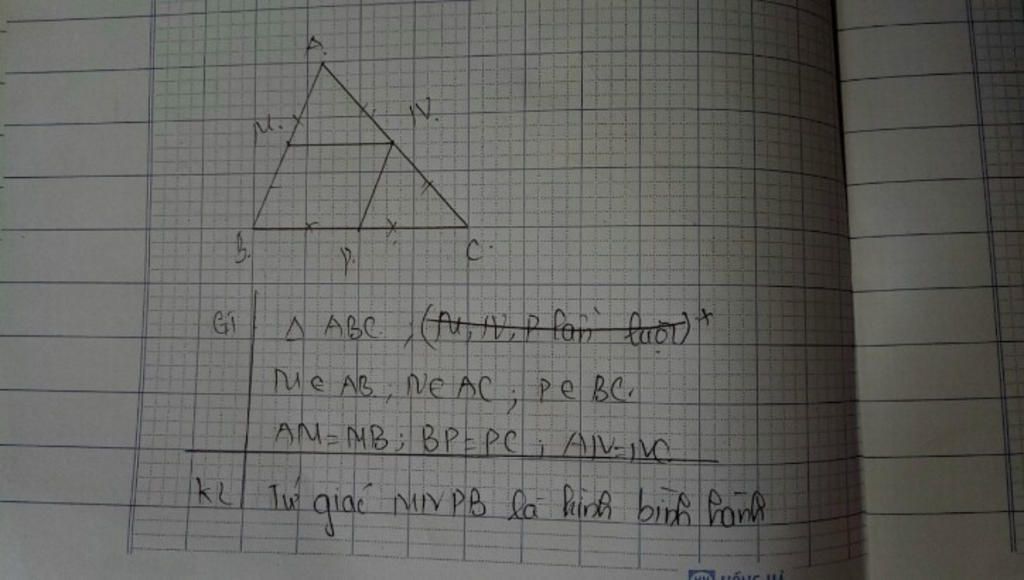 A.
M. N.
B. P. C.
GT Δ ABC ; (M, N, P lần lượt)
M ∈ AB ; N ∈ AC ; P ∈ BC.
AM = MB ; BP = PC ; AN = NC
KL Tứ giác MNPB là hình bình hành